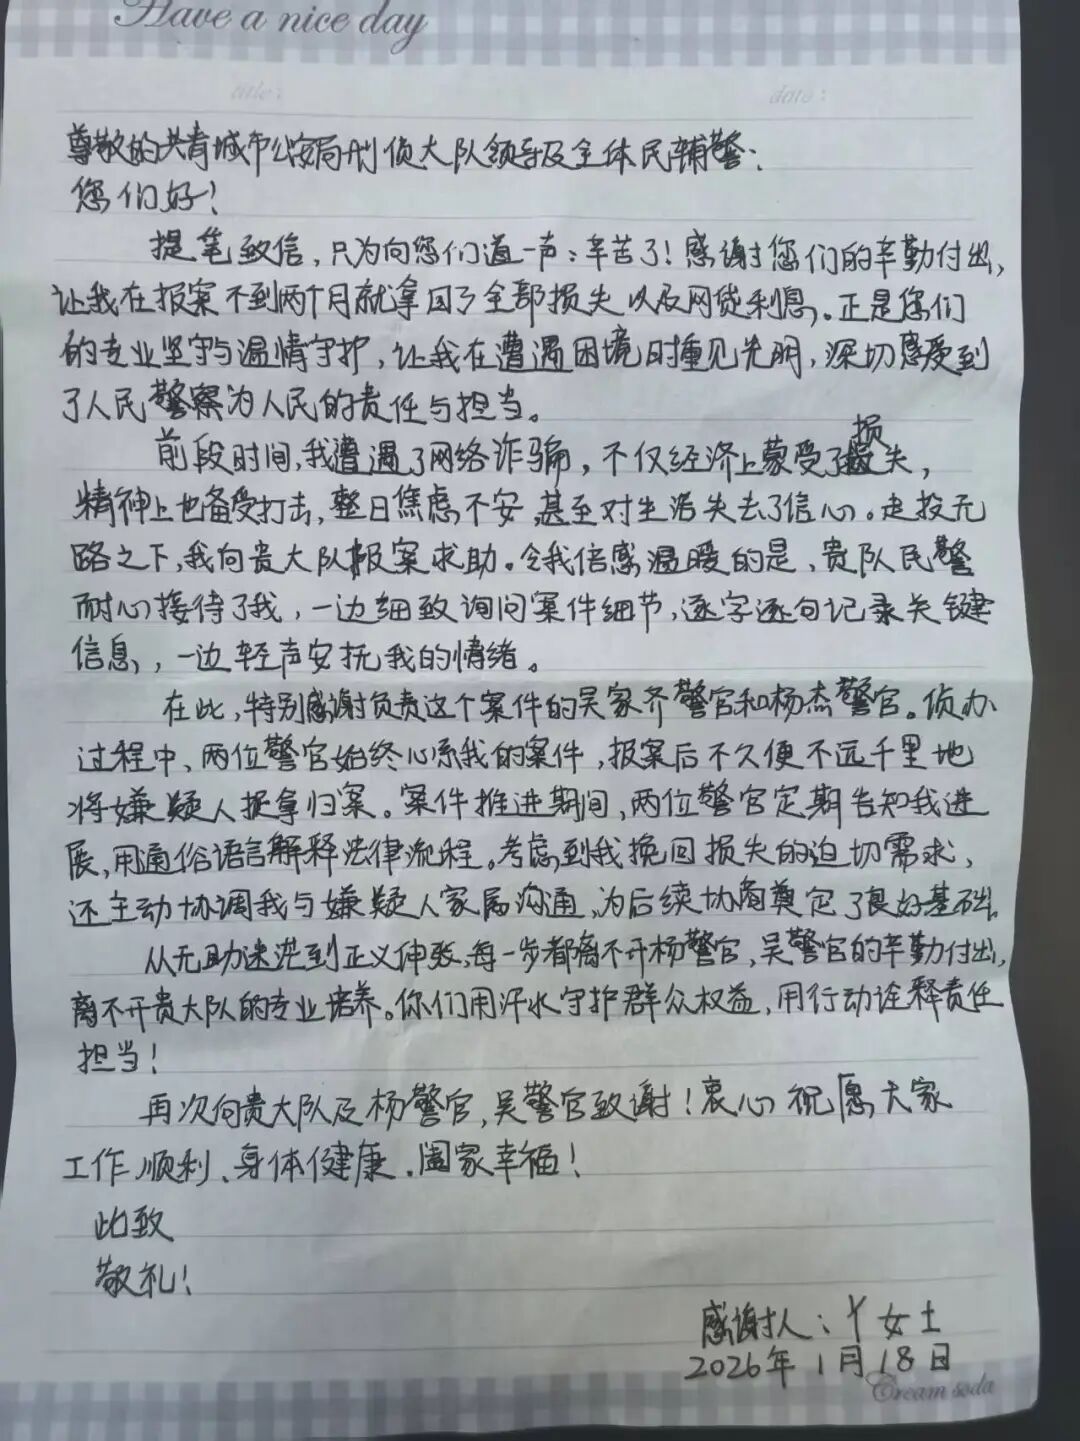 Have a nice day
title:
date:
尊敬的共青城市公安局刑侦大队领导及全体民辅警：
您们好！
提笔致信，只为向您们道一声：辛苦了！感谢您们的辛勤付出，
让我在报案不到两个月就拿回了全部损失以及网贷利息。正是您们
的专业坚守与温情守护，让我在遭遇困境时重见光明，深切感受到
了人民警察为人民的责任与担当。
前段时间，我遭遇了网络诈骗，不仅经济上蒙受了损失，
精神上也备受打击，整日焦虑不安，甚至对生活失去了信心。走投无
路之下，我向贵大队报案求助。令我倍感温暖的是，贵队民警
耐心接待了我，一边细致询问案件细节，逐字逐句记录关键
信息，一边轻声安抚我的情绪。
在此，特别感谢负责这个案件的吴家齐警官和杨杰警官。侦办
过程中、两位警官始终心系我的案件，报案后不久便不远千里地
将嫌疑人捉拿归案。案件推进期间，两位警官定期告知我进
展，用通俗语言解释法律流程。考虑到我挽回损失的迫切需求，
还主动协调我与嫌疑人家属沟通，为后续协商奠定了良好基础。
从无助迷茫到正义伸张，每一步都离不开杨警官，吴警官的辛勤付出，
离不开贵大队的专业培养。你们用汗水守护群众权益，用行动诠释责任
担当！
再次向贵大队及杨警官，吴警官致谢！衷心祝愿大家
工作顺利、身体健康、阖家幸福！
此致
敬礼！
感谢人：丫女士
2026年1月18日
Cream soda